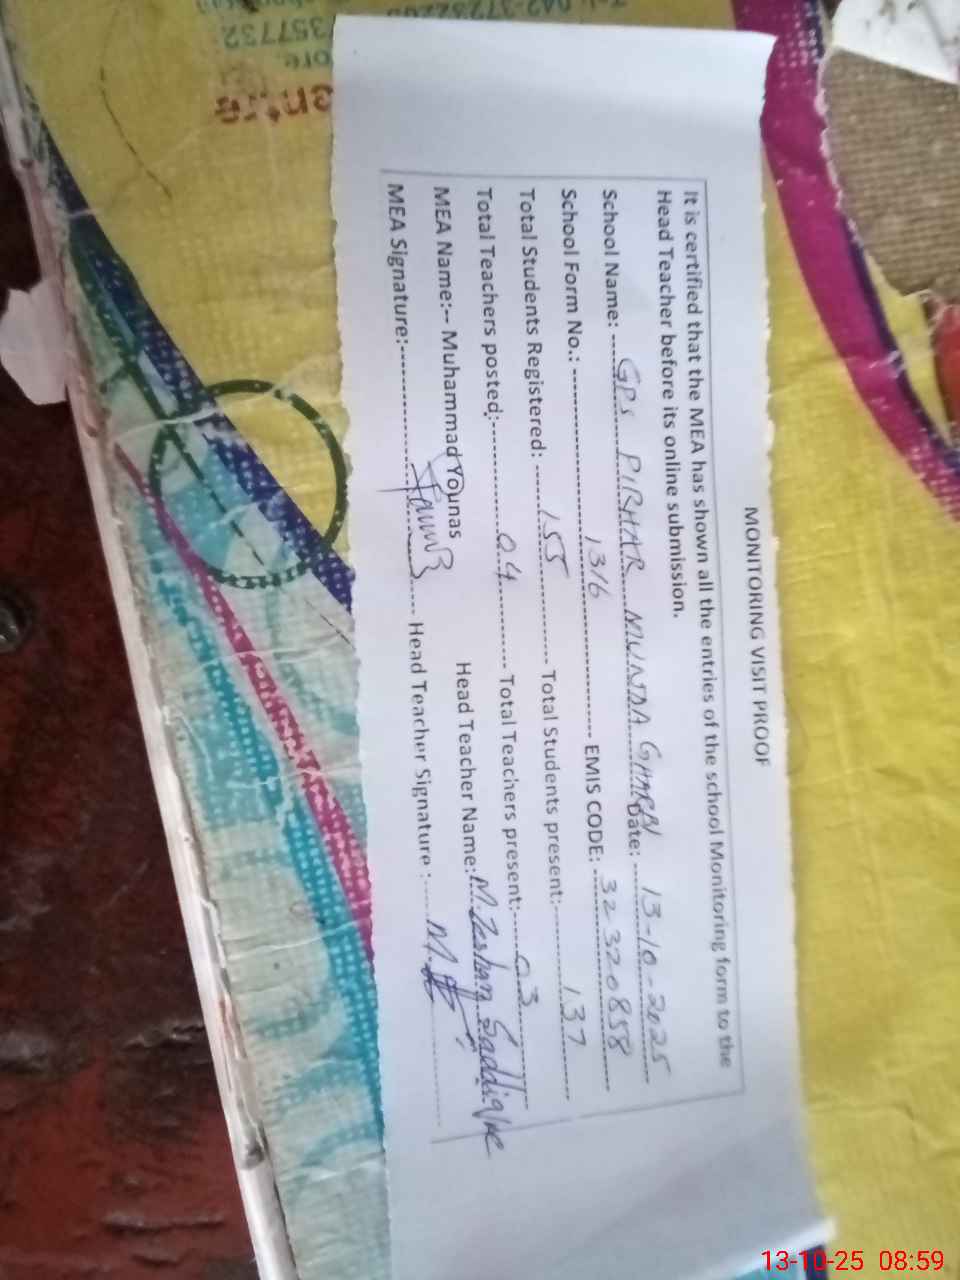 MONITORING VISIT PROOF
It is certified that the MEA has shown all the entries of the school Monitoring form to the
Head Teacher before its online submission.
School Name: GPS PIRHAR MUNDA GHARBI Date: 13-10-2025
School Form No.: 1316 EMIS CODE: 32320858
Total Students Registered: 155 Total Students present: 137
Total Teachers posted: 04 Total Teachers present: 03
MEA Name:-- Muhammad Younas Head Teacher Name: M. Zeshan Saddique
MEA Signature: Head Teacher Signature :
357732
ore.
entre
13-10-25 08:59